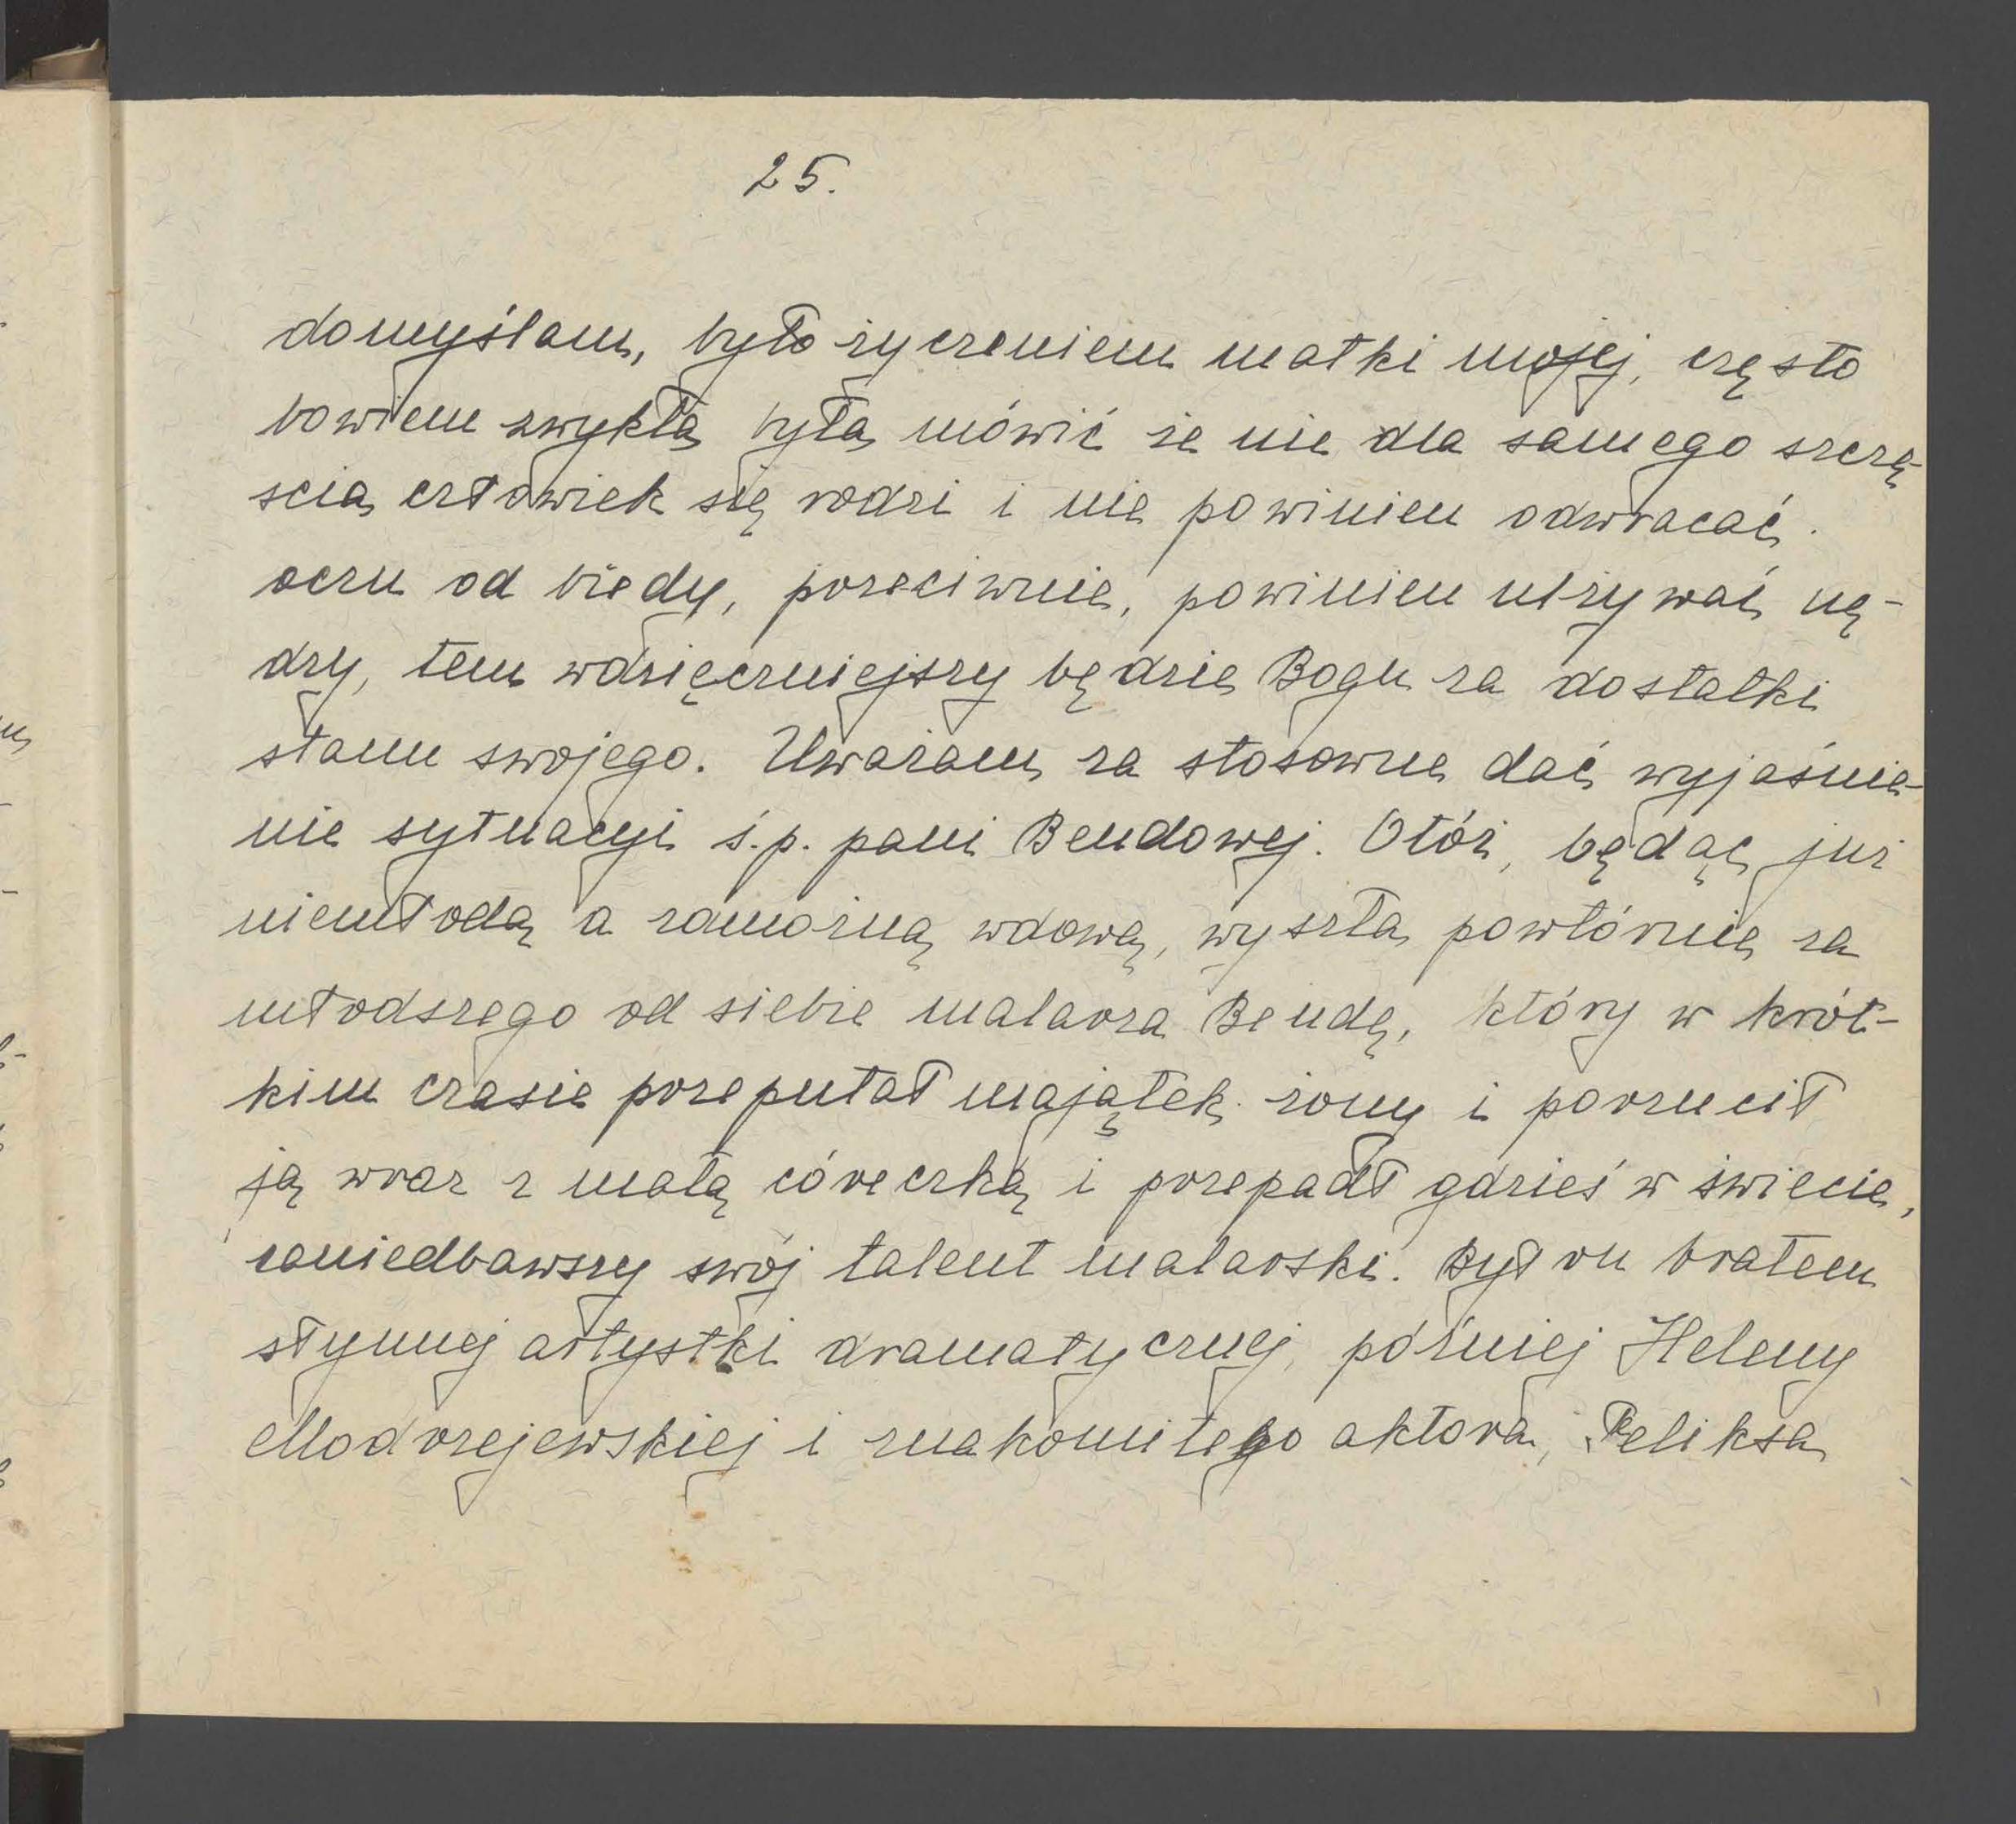 25.
domyślam, było życzeniem matki mojej, często
bowiem zwykła była mówić że nie dla samego szczę-
ścia człowiek się rodzi i nie powinien odwracać
oczu od biedy, przeciwnie, powinien ulżywać nę-
dzy, tem wdzięczniejszy będzie Bogu za dostatki
stanu swojego. Uważam za stosowne dać wyjaśnie-
nie sytuacyi ś.p. pani Bendowej. Otóż, będąc już
niemłodą a zamożną wdową, wyszła powtórnie za
młodszego od siebie malarza Bendę, który w krót-
kim czasie przeputał majątek żony i porzucił
ją wraz z małą córeczką i przepadł gdzieś w świecie,
zaniedbawszy swój talent malarski. Był on bratem
słynnej artystki dramatycznej, później Heleny
Modrzejewskiej i znakomitego aktora, Feliksa